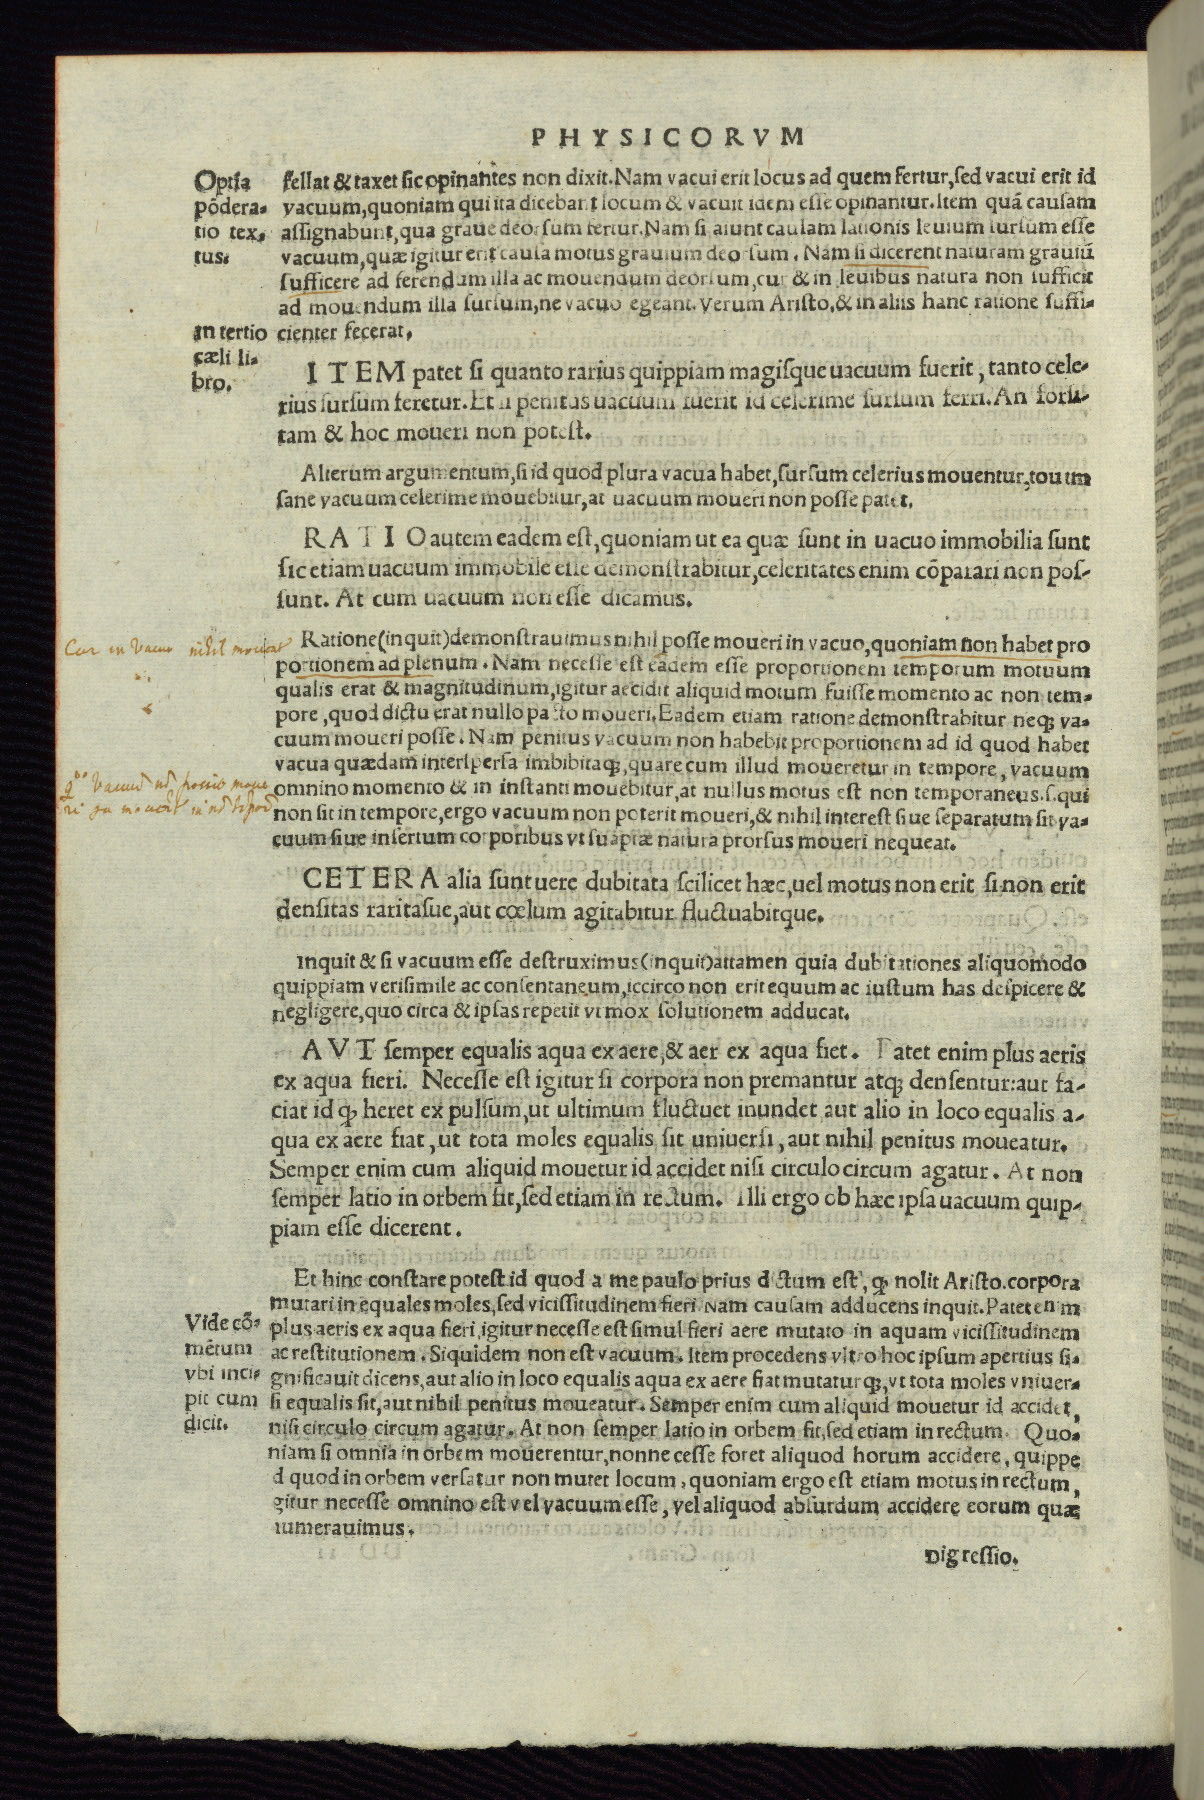 PHYSICORVM
Optīa
põdera-
tio tex,
tus.
fellat & taxet sic opinantes non dixit. Nam vacui erit locus ad quem fertur, sed vacui erit id
vacuum, quoniam qui ita dicebant locum & vacuū idem esse opinantur. Item quā causam
assignabunt, qua graue deorsum fertur. Nam si aiunt causam lationis leuium sursum esse
vacuum, quæ igitur erit causa motus grauium deorsum. Nam si dicerent naturam grauiū
sufficere ad ferendum illa ac mouendum deorsum, cur & in leuibus natura non sufficit
ad mouendum illa sursum, ne vacuo egeant. Verum Aristo, & in aliis hanc ratione suffi-
cienter fecerat.
in tertio
cæli li-
bro.
ITEM patet si quanto rarius quippiam magisque uacuum fuerit, tanto cele-
rius sursum feretur. Et si penitus uacuum fuerit id celerime sursum ferri. An forsi-
tam & hoc moueri non potest.
Alterum argumentum, si id quod plura vacua habet, sursum celerius mouentur, toutm
sane vacuum celerime mouebitur, at uacuum moueri non posse patet.
RATIO autem eadem est, quoniam ut ea quæ sunt in uacuo immobilia sunt
sic etiam uacuum immobile esse demonstrabitur, celeritates enim cōparari non pos-
sunt. At cum uacuum non esse dicamus.
Cur in vacuo nihil moueat
Ratione (inquit) demonstrauimus nihil posse moueri in vacuo, quoniam non habet pro
portionem ad plenum. Nam necesse est eadem esse proportionem temporum motuum
qualis erat & magnitudinum, igitur accidit aliquid motum fuisse momento ac non tem-
pore, quod dictu erat nullo pacto moueri. Eadem etiam ratione demonstrabitur neqȝ va-
cuum moueri posse. Nam penitus vacuum non habebit proportionem ad id quod habet
vacua quædam interspersa imbibitaqȝ, quare cum illud moueretur in tempore, vacuum
omnino momento & in instanti mouebitur, at nullus motus est non temporaneus. s. qui
non sit in tempore, ergo vacuum non poterit moueri, & nihil interest siue separatum sit va-
cuum siue insertum corporibus vt suapiæ natura prorsus moueri nequeat.
CETERA alia sunt uere dubitata scilicet hæc, uel motus non erit si non erit
densitas raritasue, aut cœlum agitabitur fluctuabitque.
Inquit & si vacuum esse destruximus (inquit) attamen quia dubitationes aliquomodo
quippiam verisimile ac consentaneum, iccirco non erit equum ac iustum has despicere &
negligere, quo circa & ipsas repetit vt mox solutionem adducat.
AVT semper equalis aqua ex aere, & aer ex aqua fiet. Patet enim plus aeris
ex aqua fieri. Necesse est igitur si corpora non premantur atqȝ densentur: aut fa-
ciat id qȝ heret ex pulsum, ut ultimum fluctuet inundet aut alio in loco equalis a-
qua ex aere fiat, ut tota moles equalis sit uniuersi, aut nihil penitus moueatur.
Semper enim cum aliquid mouetur id accidet nisi circulo circum agatur. At non
semper latio in orbem fit, sed etiam in rectum. Illi ergo ob hæc ipsa uacuum quip-
piam esse dicerent.
Et hinc constare potest id quod a me paulo prius dictum est, qȝ nolit Aristo. corpora
mutari in equales moles, sed vicissitudinem fieri Nam causam adducens inquit. Patet enim
plus aeris ex aqua fieri, igitur necesse est simul fieri aere mutato in aquam vicissitudinem
ac restitutionem. Siquidem non est vacuum. Item procedens vltro hoc ipsum apertius si-
gnificauit dicens, aut alio in loco equalis aqua ex aere fiat mutaturqȝ, vt tota moles vniuer-
si equalis sit, aut nihil penitus moueatur. Semper enim cum aliquid mouetur id accidet,
nisi circulo circum agatur. At non semper latio in orbem fit, sed etiam in rectum. Quo-
niam si omnia in orbem mouerentur, nonnecesse foret aliquod horum accidere, quippe
d quod in orbem versatur non mutet locum, quoniam ergo est etiam motus in rectum,
gitur necesse omnino est vel vacuum esse, vel aliquod absurdum accidere eorum quæ
numerauimus.
Vide cō-
mētum
vbi inci-
pit cum
dicit.
Digressio.